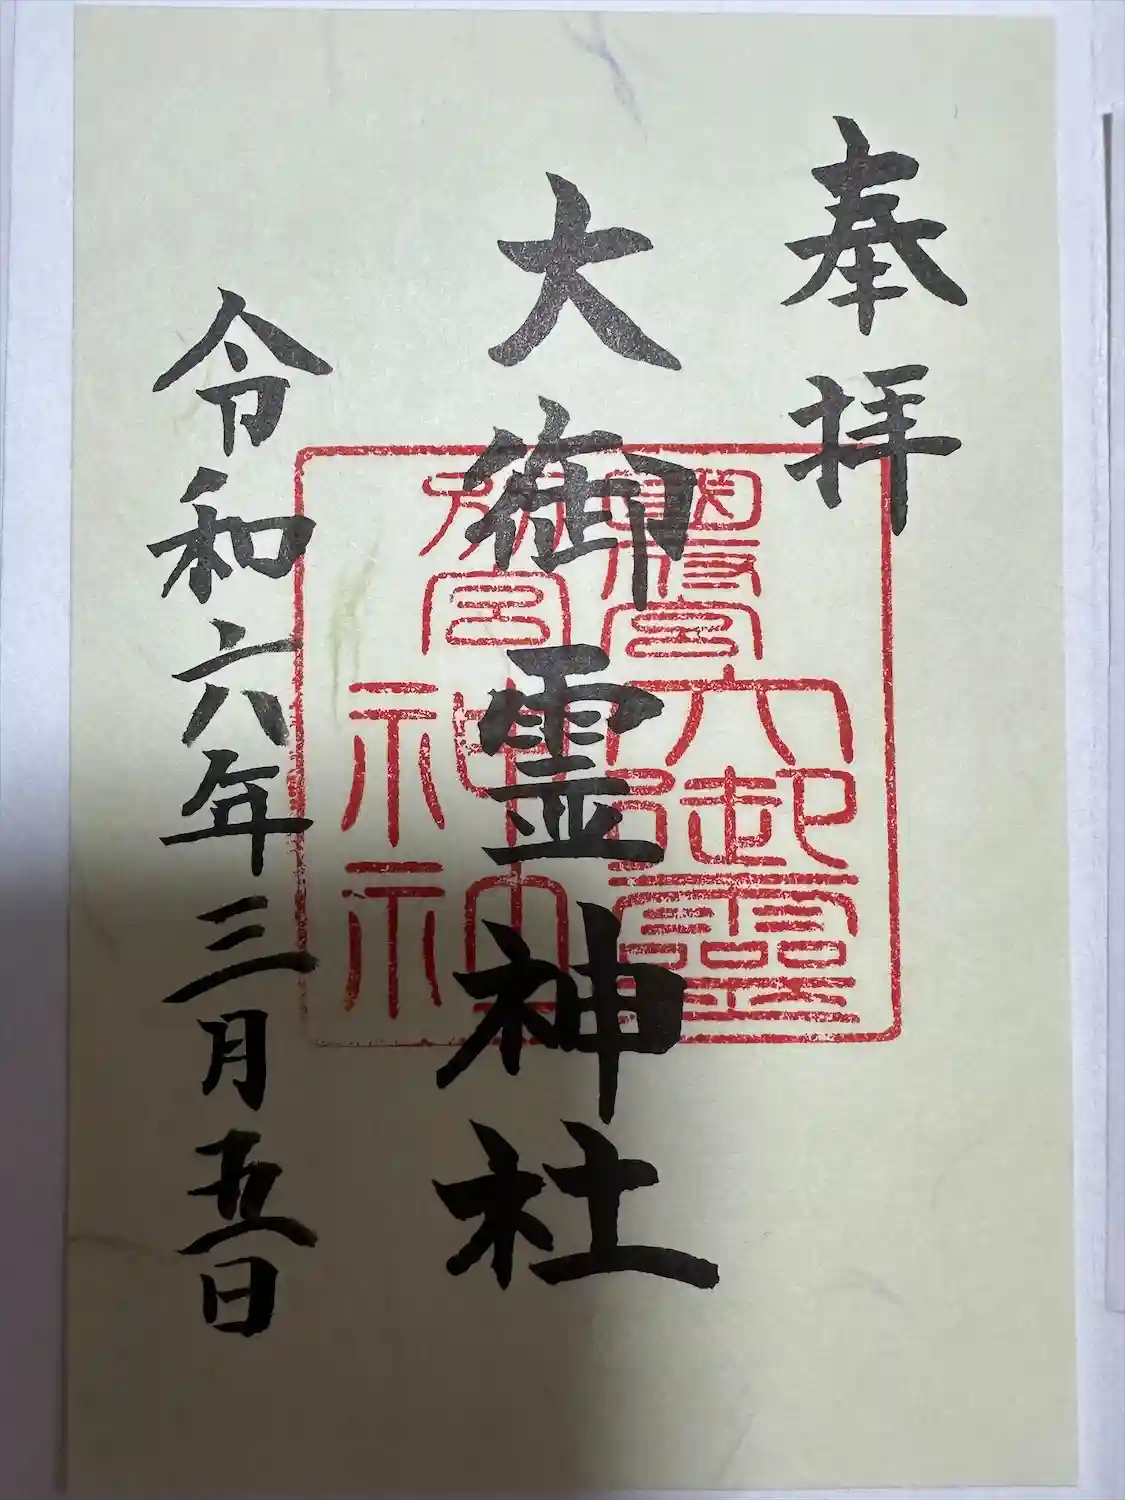 奉拝
大御霊神社
令和六年三月五日